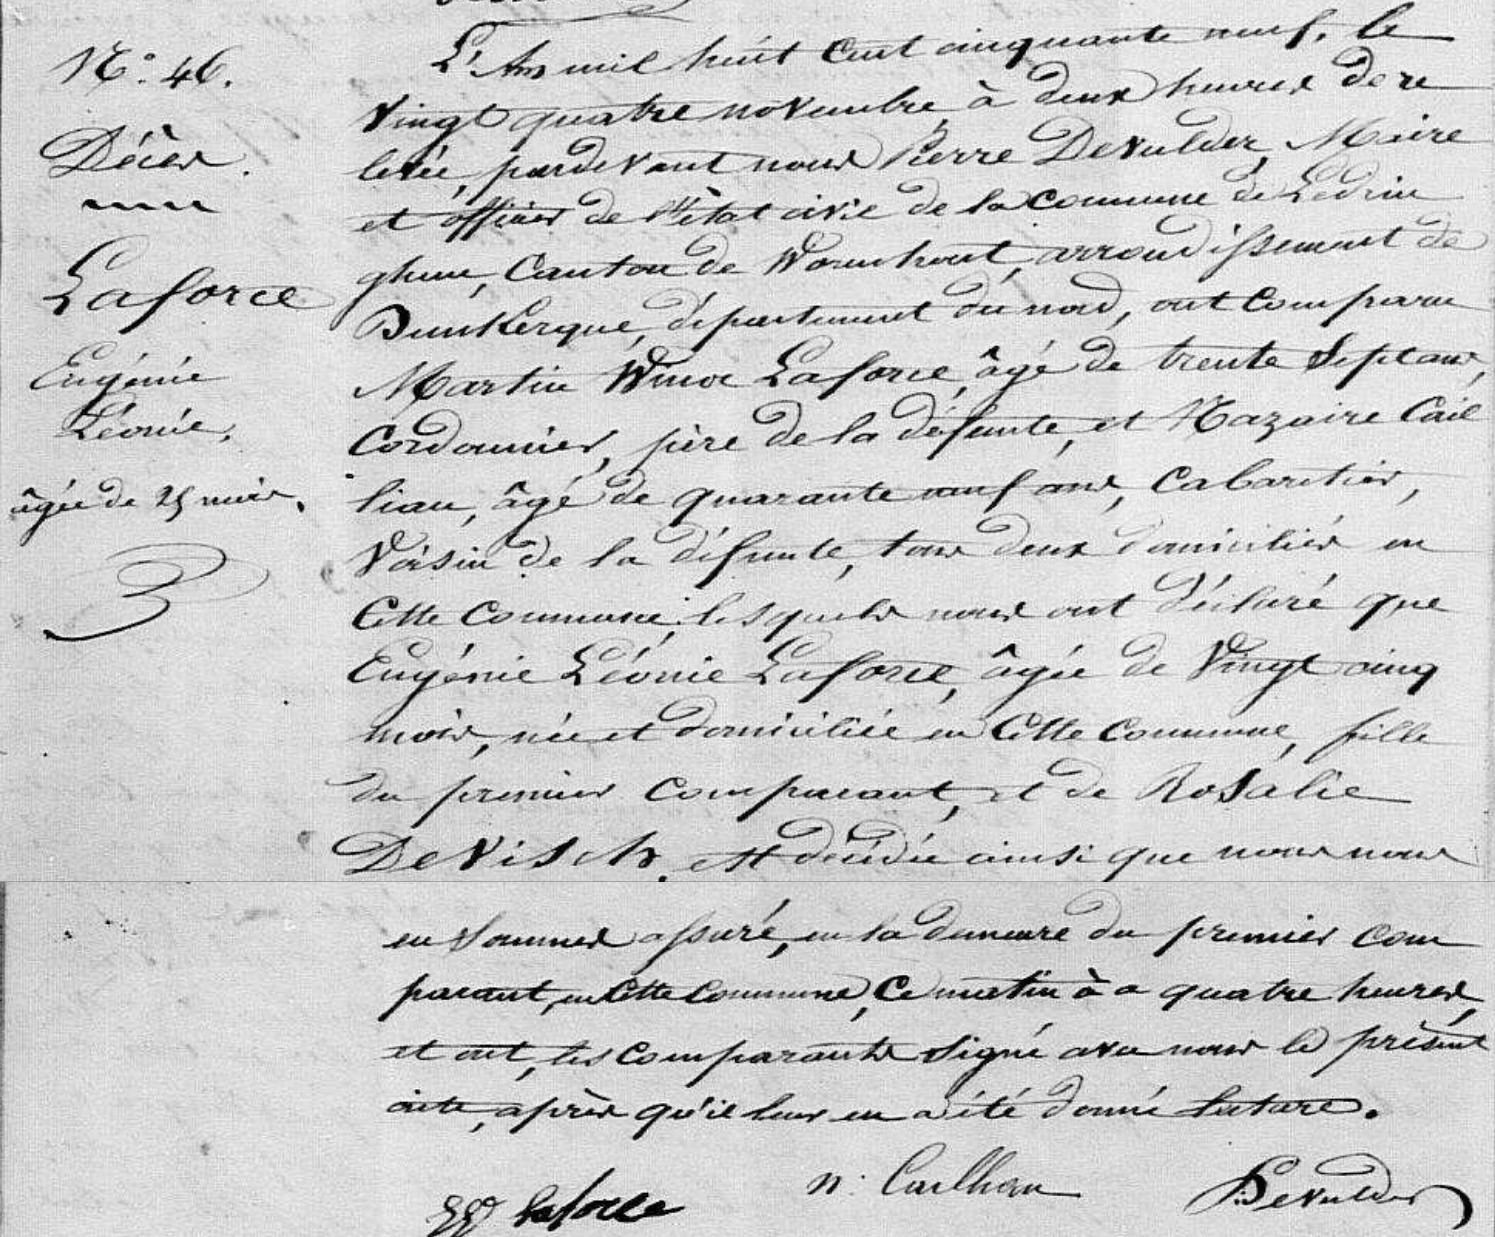 N.° 46.
Décès
Laforce
Eugénie
Léonie,
âgée de 25 mois.
L'An mil huit cent cinquante neuf, le
vingt quatre novembre, à deux heures de re
levée, pardevant nous Pierre Devulder, Maire
et officier de l'état civil de la commune de Ledrin
ghem, Canton de Wormhout, arrondissement de
Dunkerque, département du nord, ont comparu
Martin Winoc Laforce, âgé de trente sept ans,
Cordonnier, père de la défunte, et Nazaire Cail
liau, âgé de quarante neuf ans, Cabaretier,
Voisin de la défunte, tous deux domiciliés en
Cette Commune; lesquels nous ont déclaré que
Eugénie Léonie Laforce, âgée de Vingt cinq
mois, née et domiciliée en Cette Commune, fille
du premier Comparant, et de Rosalie
Devisch, est décédée ainsi que nous nous
en sommes assuré, en la demeure du premier com
parant, en Cette Commune, Ce matin à quatre heures,
et ont, les comparants signé avec nous le présent
acte, après qu'il leur en a été donné lecture.
Laforce
n. Cailliau
P. Devulder